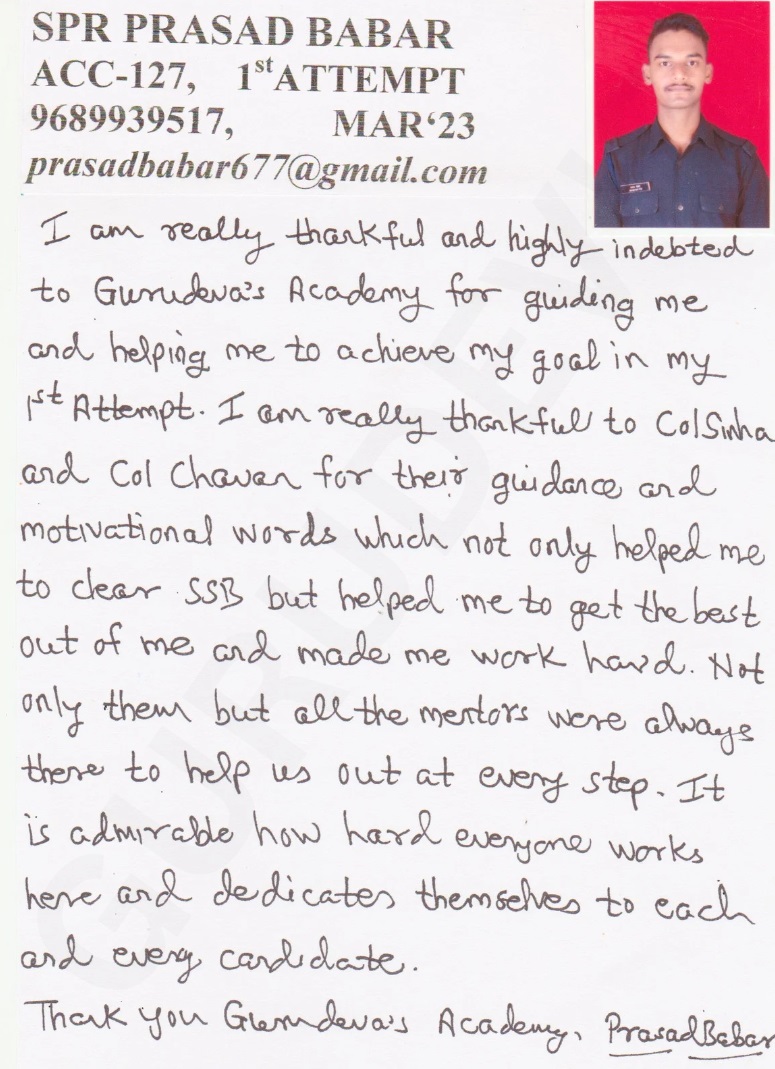 SPR PRASAD BABAR
ACC-127, 1st ATTEMPT
9689939517, MAR‘23
prasadbabar677@gmail.com
I am really thankful and highly indebted
to Gurudeva's Academy for guiding me
and helping me to achieve my goal in my
1st Attempt. I am really thankful to Col Sinha
and Col Chavan for their guidance and
motivational words which not only helped me
to clear SSB but helped me to get the best
out of me and made me work hard. Not
only them but all the mentors were always
there to help us out at every step. It
is admirable how hard everyone works
here and dedicates themselves to each
and every candidate.
Thank you Gurudeva's Academy. Prasad Babar